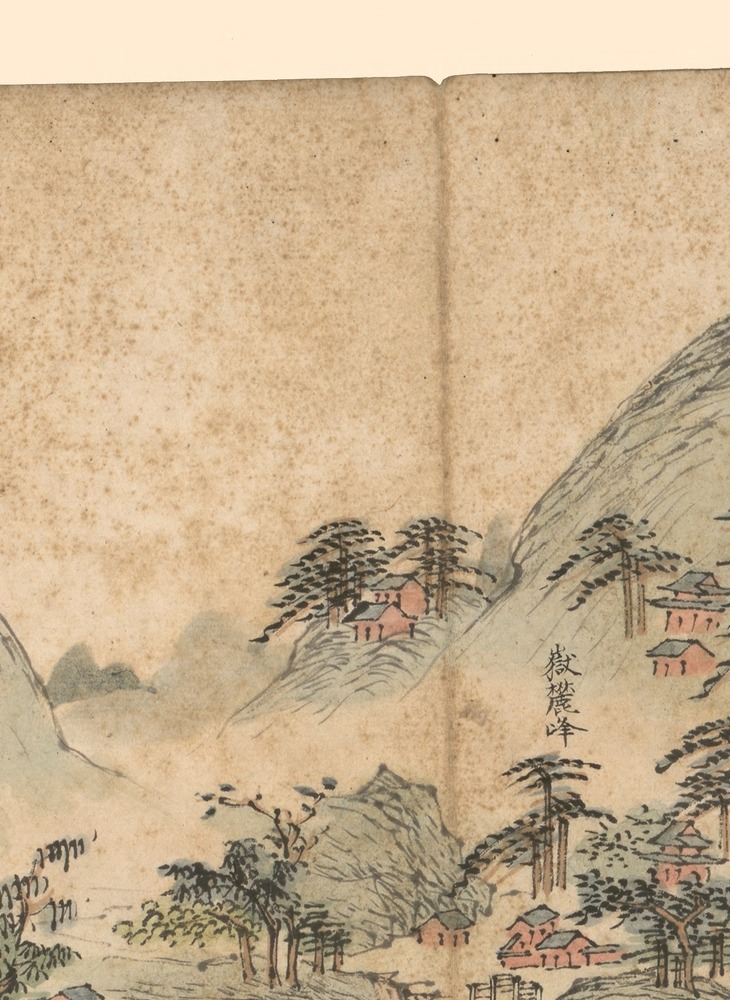 嶽麓峰